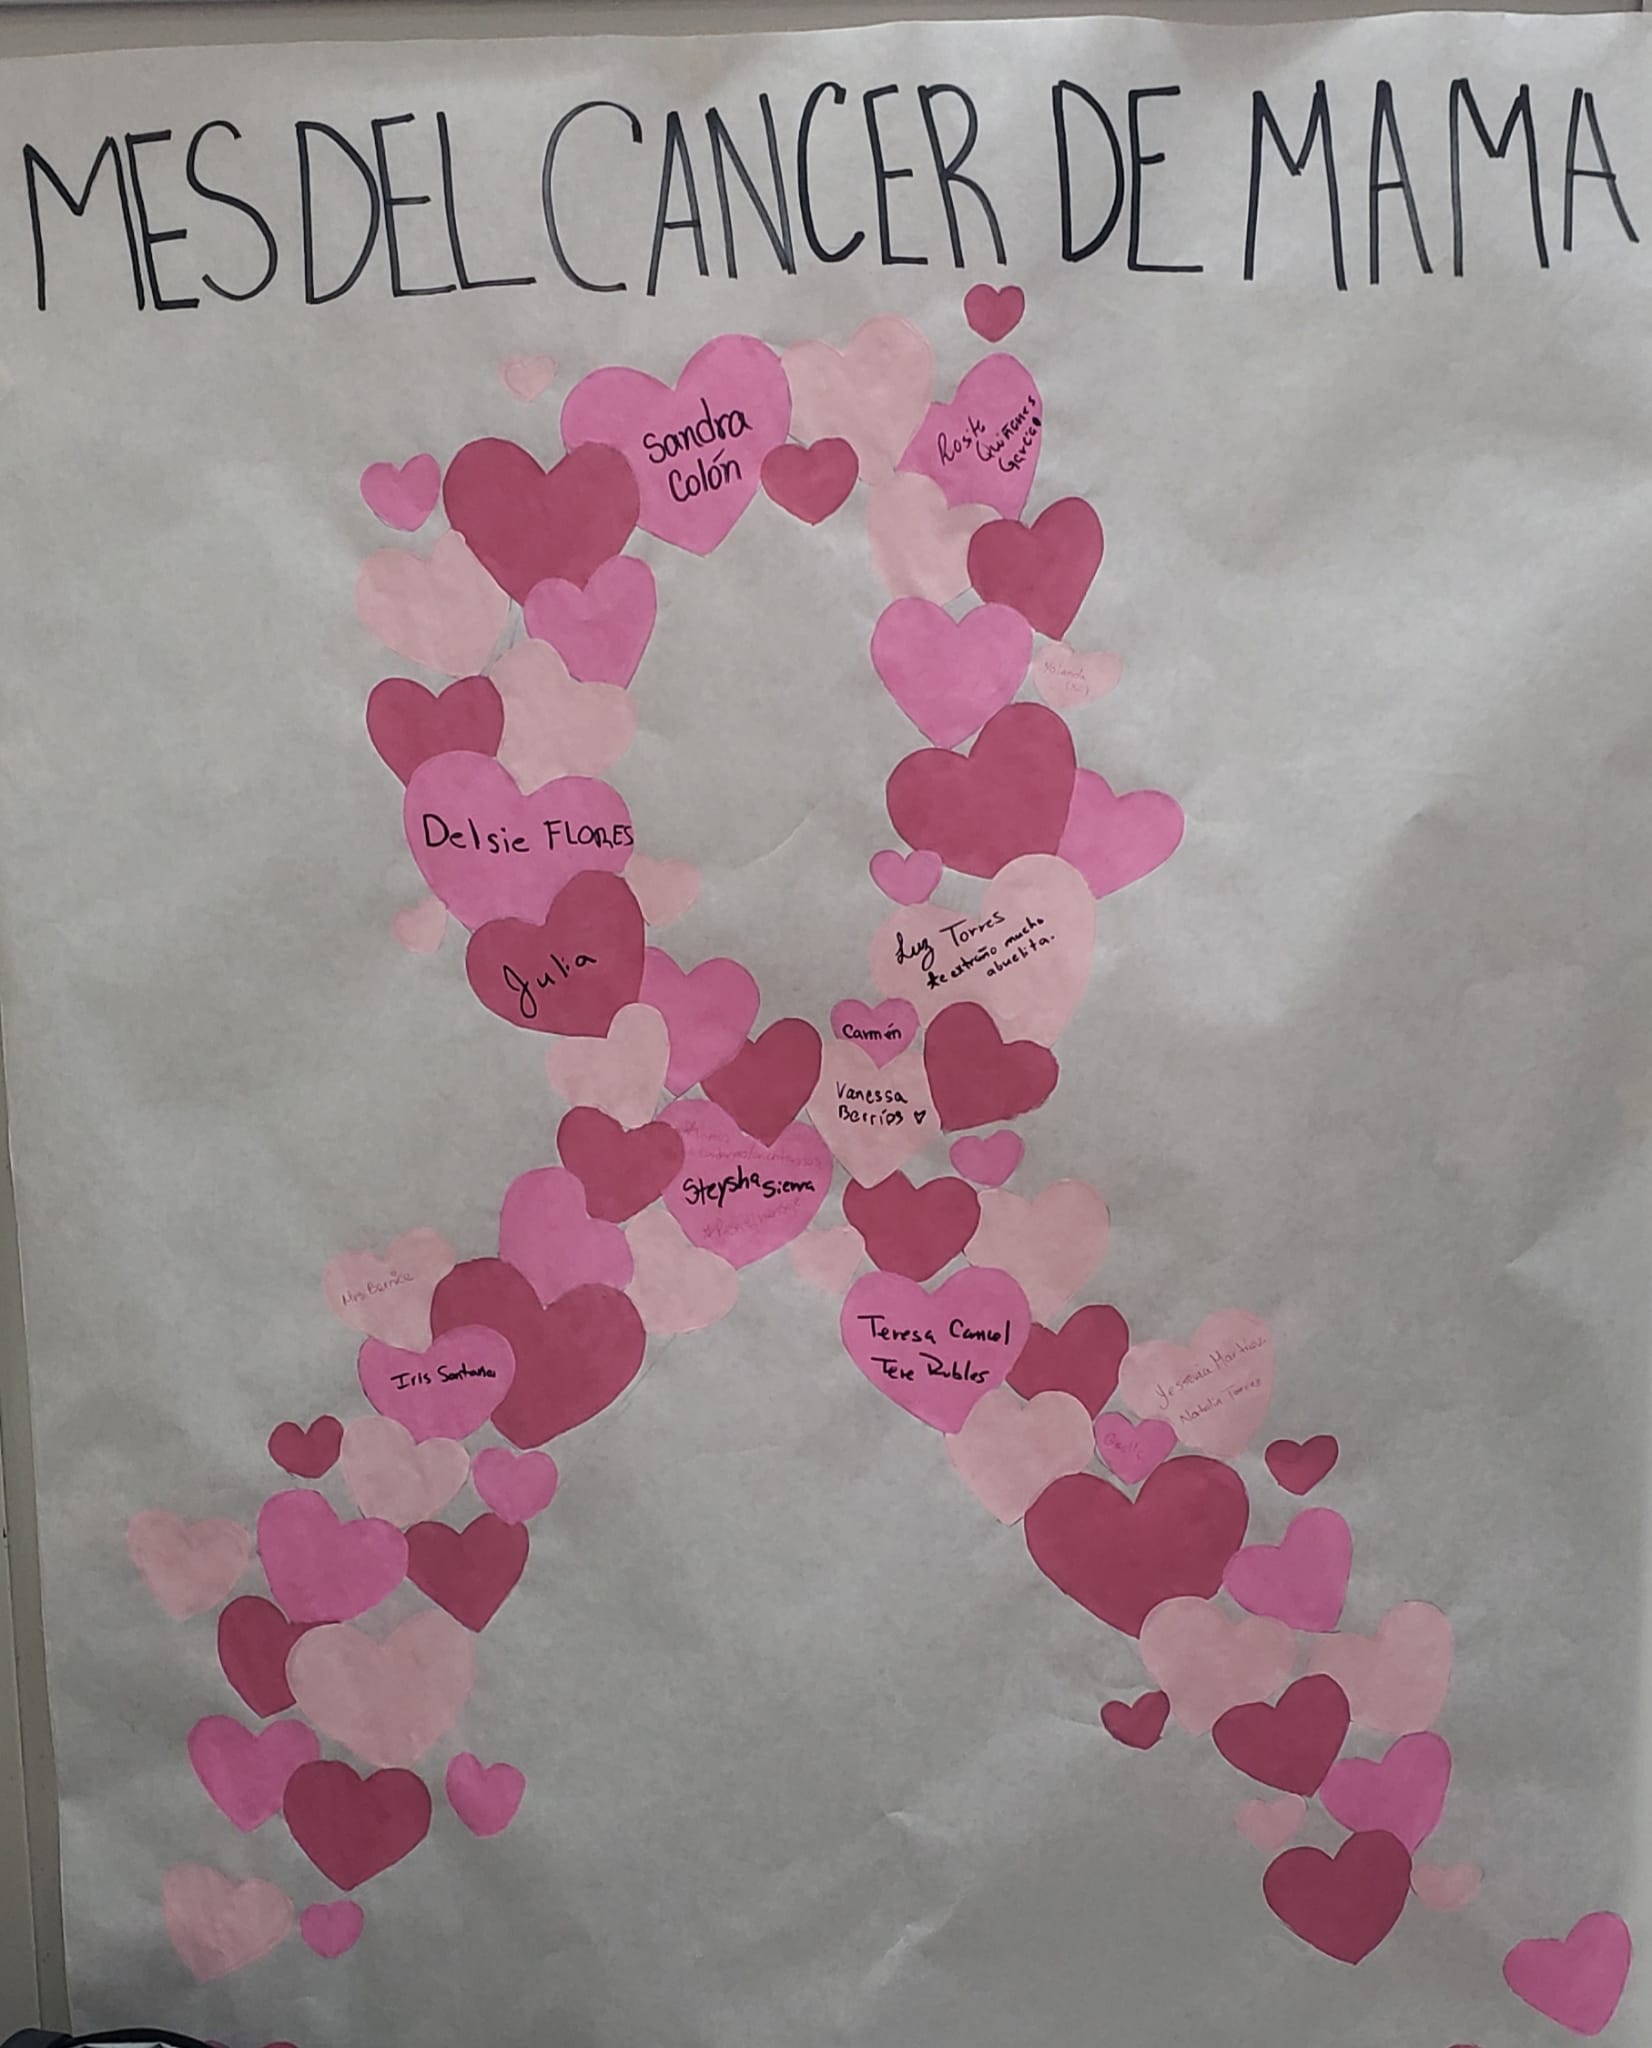 MES DEL CANCER DE MAMA
Sandra
Colón
Rosita
Quiñones
García
Yolanda
Delsie FLORES
Luz Torres
te extraño mucho
abuelita.
Julia
Carmén
Vanessa
Berríos
Steysha Sierra
Mrs. Bernice
Iris Santana
Teresa Cancel
Tere Robles
Yesenia Martínez
Natalia Torres